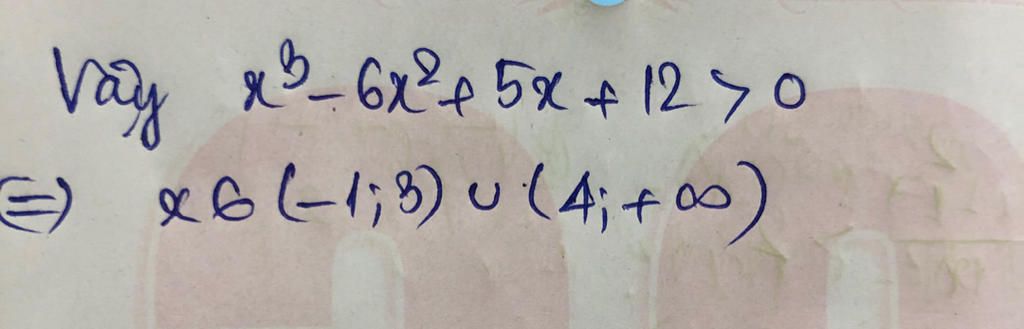 Vậy x³ - 6x² + 5x + 12 > 0
⇔ x ∈ (-1; 3) ∪ (4; +∞)